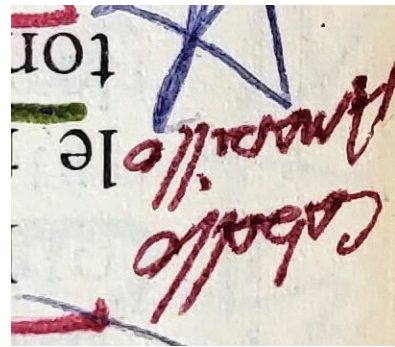 Caballo
Amarillo
le